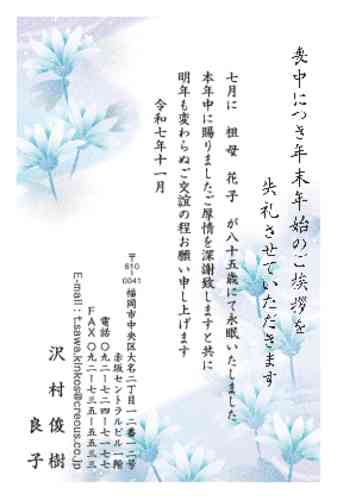 喪中につき年末年始のご挨拶を
失礼させていただきます
七月に 祖母 花子 が八十五歳にて永眠いたしました
本年中に賜りましたご厚情を深謝致しますと共に
明年も変わらぬご交誼の程お願い申し上げます
令和七年十一月
〒810-0041 福岡市中央区大名二丁目一二番一二号
赤坂セントラルビル一階
電話 〇九二ー七二四ー七一七七
FAX 〇九二ー七三五ー五五三三
E-mail:t.sawa.kinkos@creous.co.jp
沢村俊樹
良子